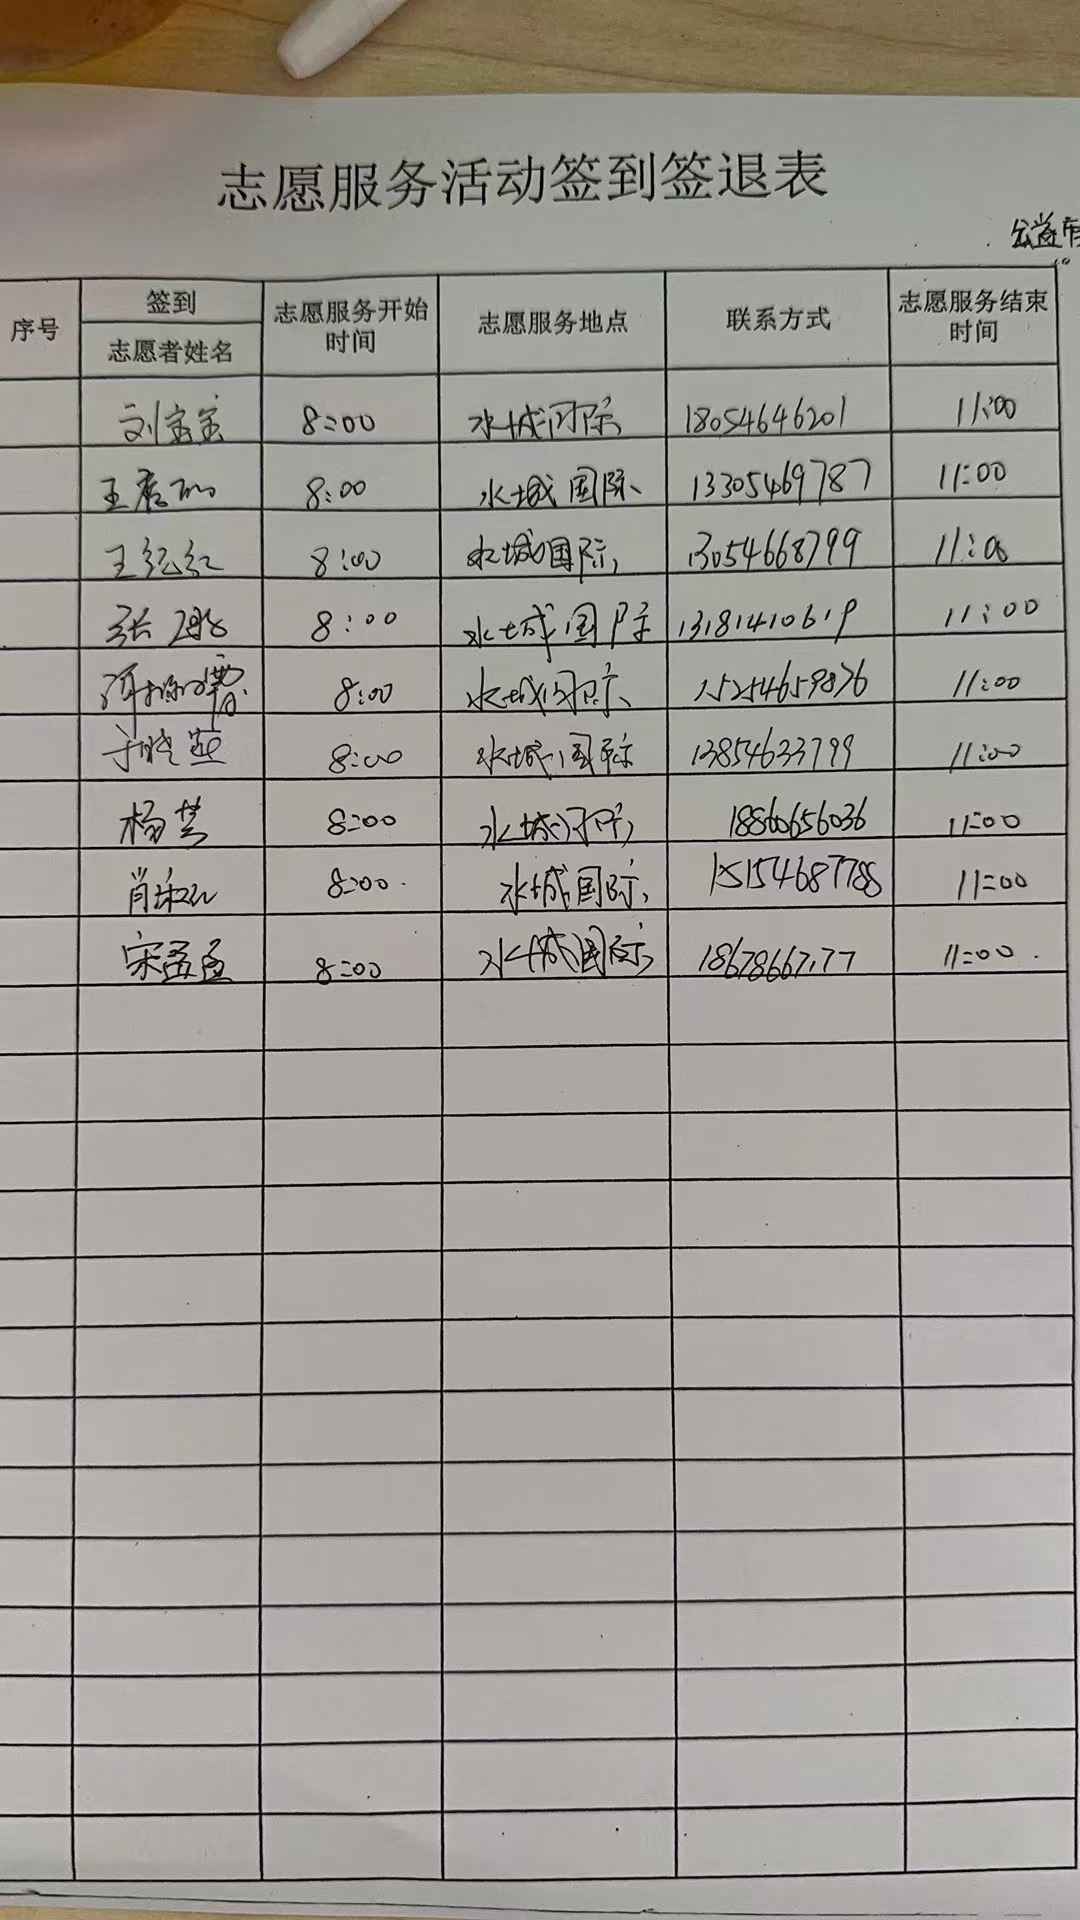 志愿服务活动签到签退表
公益
序号 签到 志愿者姓名 志愿服务开始时间 志愿服务地点 联系方式 志愿服务结束时间
刘宝宝 8:00 水城国际 18054646201 11:00
王 8:00 水城国际 13305469787 11:00
王纪红 8:00 水城国际 13054668799 11:00
张 8:00 水城国际 13181410619 11:00
8:00 水城国际 15254659876 11:00
于晓燕 8:00 水城国际 13854633799 11:00
杨慧 8:00 水城国际 18860656036 11:00
肖 8:00 水城国际 15154687788 11:00
宋孟孟 8:00 水城国际 18678667177 11:00